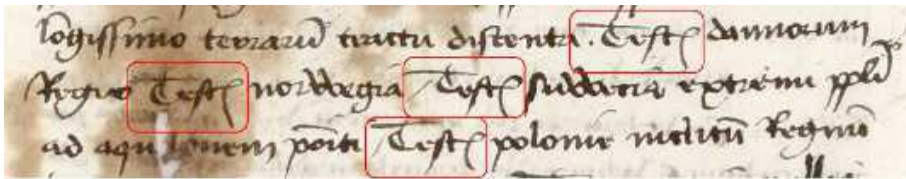 logissimo terrarū tractu distenta. Testꝭ dannorum
Regno Testꝭ norwegia Testꝭ suwetia extremi ppli
ad aquilonem poiti Testꝭ polonie inclitū Regnū